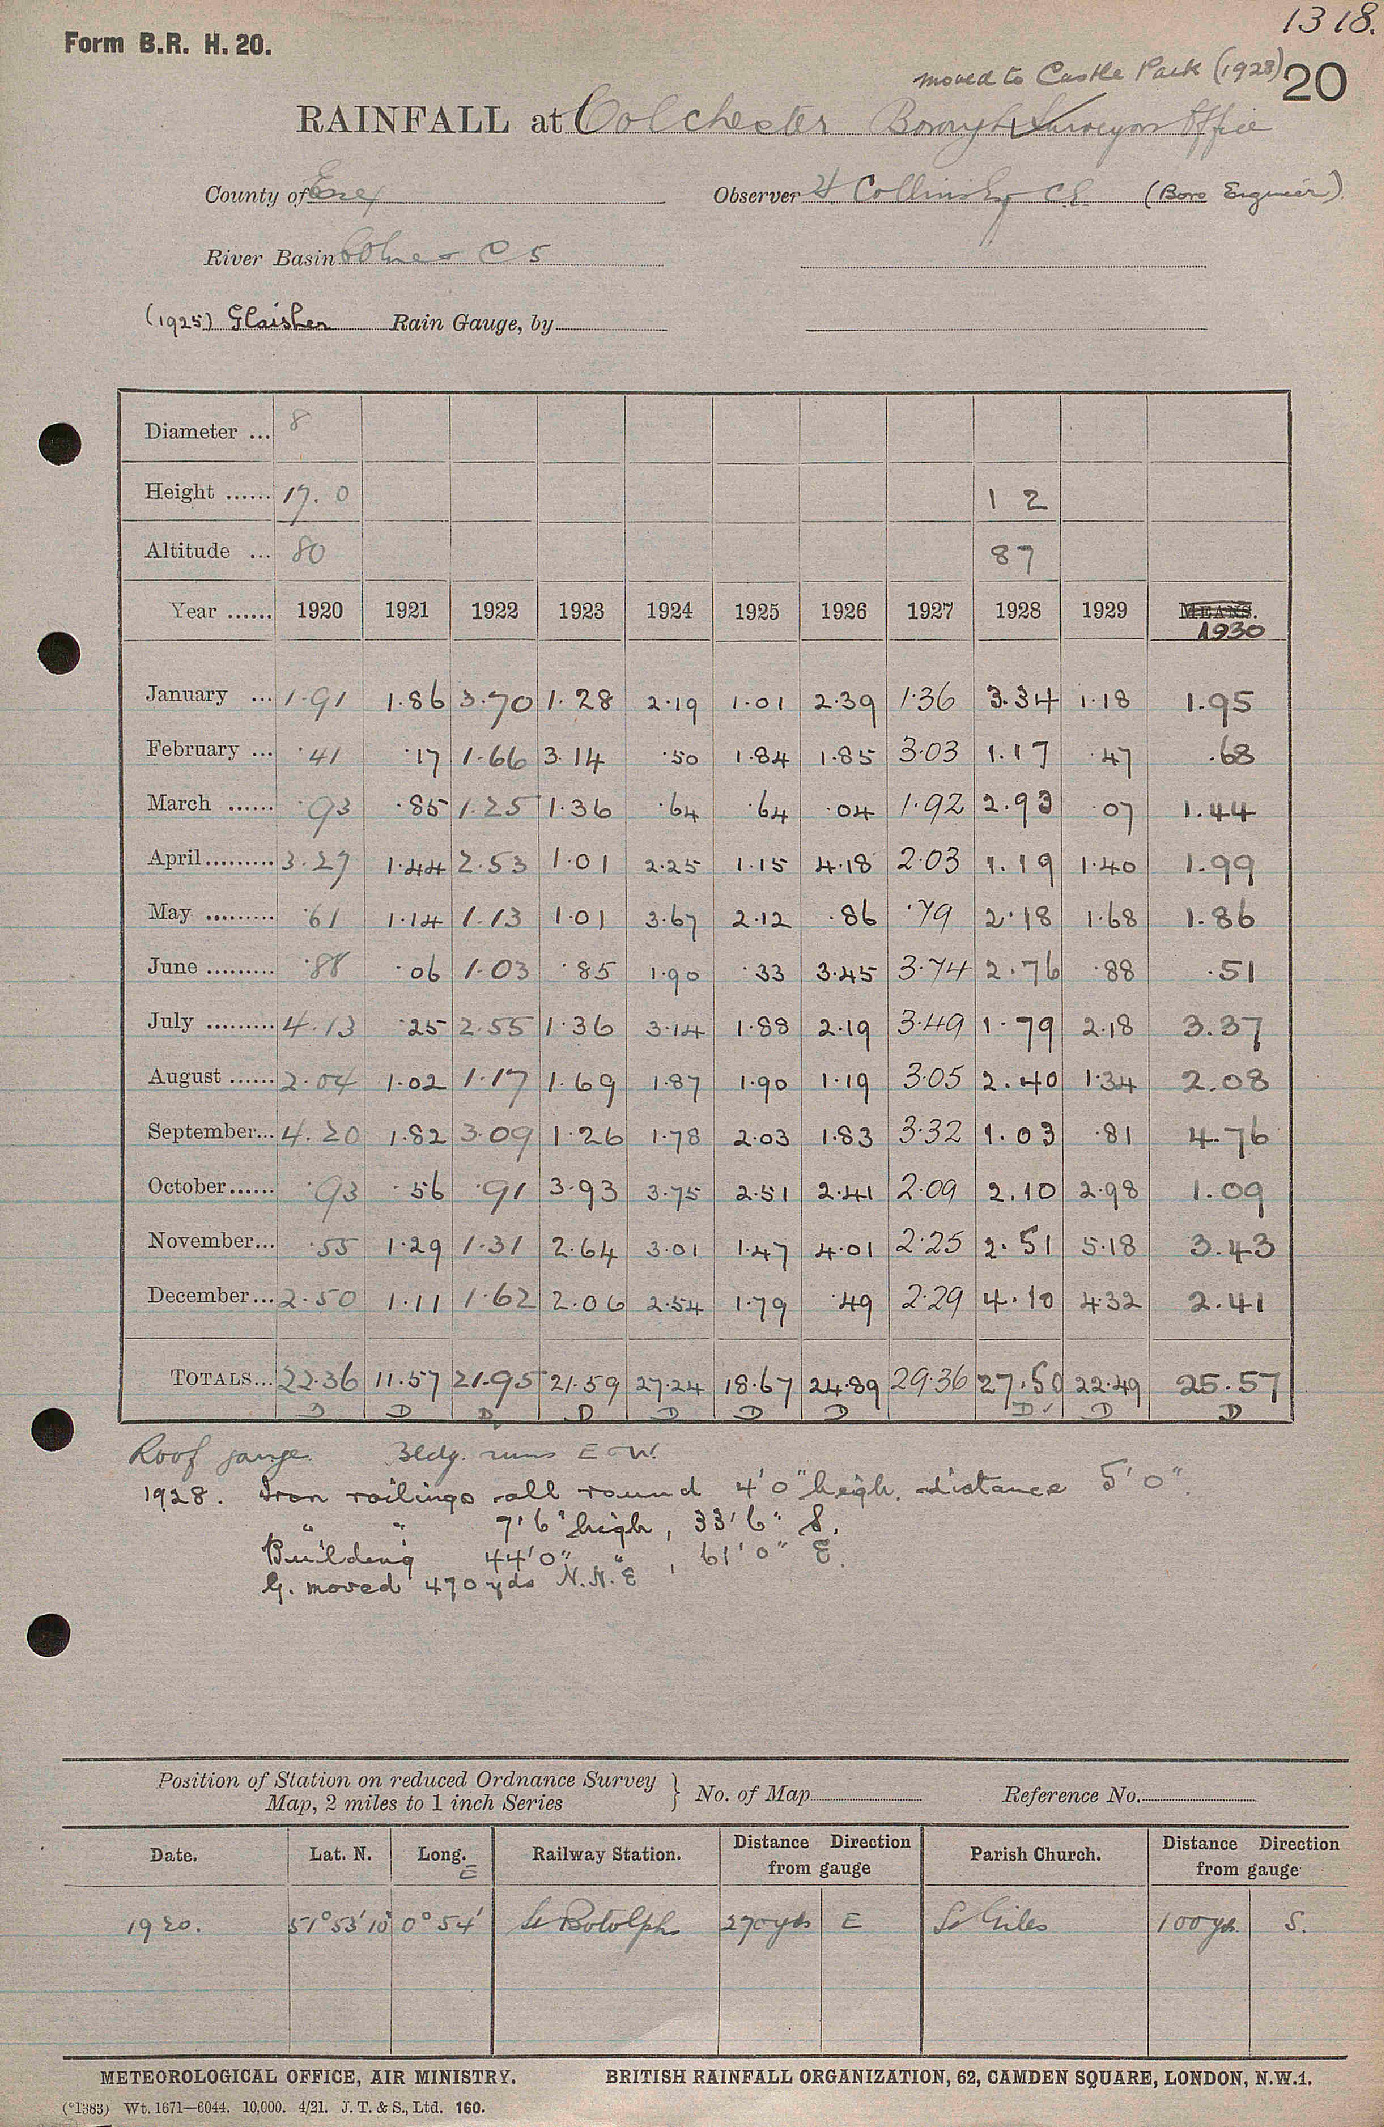 1318.
Form B.R. H. 20.
moved to Castle Park (1928) 20
RAINFALL at Colchester Borough Surveyors Office
County of Essex Observer H Collins Esq C.E. (Boro Engineer)
River Basin Colne - C 5
(1925) Glaisher Rain Gauge, by
Diameter ... 8
Height ...... 17. 0 1 2
Altitude ... 80 87
Year ...... 1920 1921 1922 1923 1924 1925 1926 1927 1928 1929 MEANS. 1930
January ... 1.91 1.86 3.70 1.28 2.19 1.01 2.39 1.36 3.34 1.18 1.95
February ... .41 .17 1.66 3.14 .50 1.84 1.85 3.03 1.17 .47 .68
March ...... .93 .85 1.25 1.36 .64 .64 .04 1.92 2.93 .07 1.44
April ......... 3.27 1.44 2.53 1.01 2.25 1.15 4.18 2.03 1.19 1.40 1.99
May ......... .61 1.14 1.13 1.01 3.67 2.12 .86 .79 2.18 1.68 1.86
June ......... .88 .06 1.03 .85 1.90 .33 3.45 3.74 2.76 .88 .51
July ......... 4.13 .25 2.55 1.36 3.14 1.88 2.19 3.49 1.79 2.18 3.37
August ...... 2.04 1.02 1.17 1.69 1.87 1.90 1.19 3.05 2.40 1.34 2.08
September... 4.20 1.82 3.09 1.26 1.78 2.03 1.83 3.32 1.03 .81 4.76
October ...... .93 .56 .91 3.93 3.75 2.51 2.41 2.09 2.10 2.98 1.09
November... .55 1.29 1.31 2.64 3.01 1.47 4.01 2.25 2.51 5.18 3.43
December ... 2.50 1.11 1.62 2.06 2.54 1.79 .49 2.29 4.10 4.32 2.41
TOTALS... 22.36 11.57 21.95 21.59 27.24 18.67 24.89 29.36 27.50 22.49 25.57
D D D D D D D D D D
Roof gauge. Bldg. runs E - W.
1928. Iron railings all round 4'0" high. distance 5'0".
" " 7'6" high, 33'6" S.
Building 44'0" " , 61'0" E.
G. moved 470 yds N.N.E
Position of Station on reduced Ordnance Survey Map, 2 miles to 1 inch Series } No. of Map Reference No.
Date. Lat. N. Long. E Railway Station. Distance Direction from gauge Parish Church. Distance Direction from gauge
1920. 51°53'10" 0°54' St Botolphs 270 yds E St Giles 100 yds. S.
METEOROLOGICAL OFFICE, AIR MINISTRY. BRITISH RAINFALL ORGANIZATION, 62, CAMDEN SQUARE, LONDON, N.W.1.
(*1383) Wt. 1671—6044. 10,000. 4/21. J. T. & S., Ltd. 160.